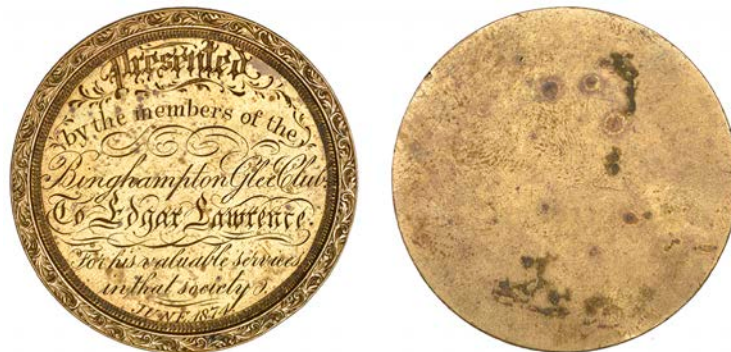 Presented
by the members of the
Binghampton Glee Club.
To Edgar Lawrence.
For his valuable services
in that society,
JUNE 1874